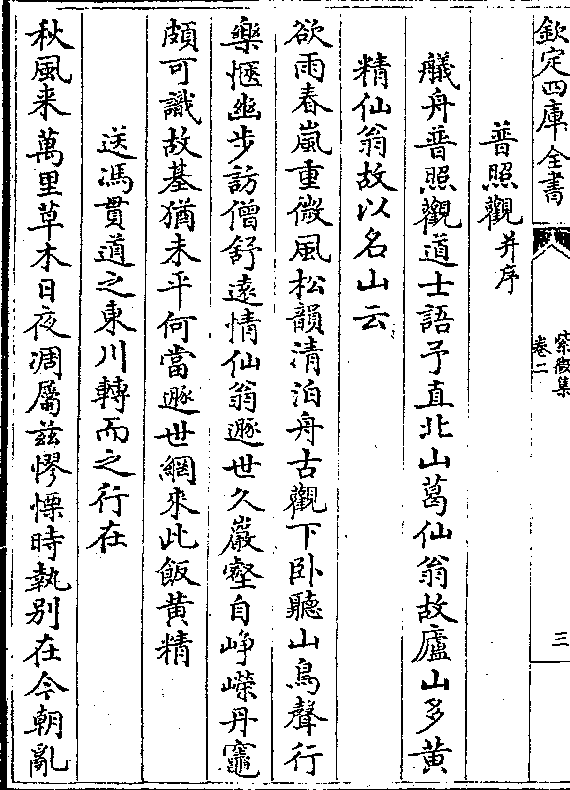 欽定四庫全書
紫微集
卷二
三
普照觀并序
艤舟普照觀道士語予直北山葛仙翁故廬山多黄
精仙翁故以名山云
欲雨春嵐重微風松韻清泊舟古觀下卧聽山鳥聲行
樂愜幽步訪僧舒遠情仙翁遯世久巖壑自崢嶸丹竈
頗可識故基猶未平何當遯世網來此飯黄精
送馮貫道之東川轉而之行在
秋風来萬里草木日夜凋屬兹憀慄時執别在今朝亂